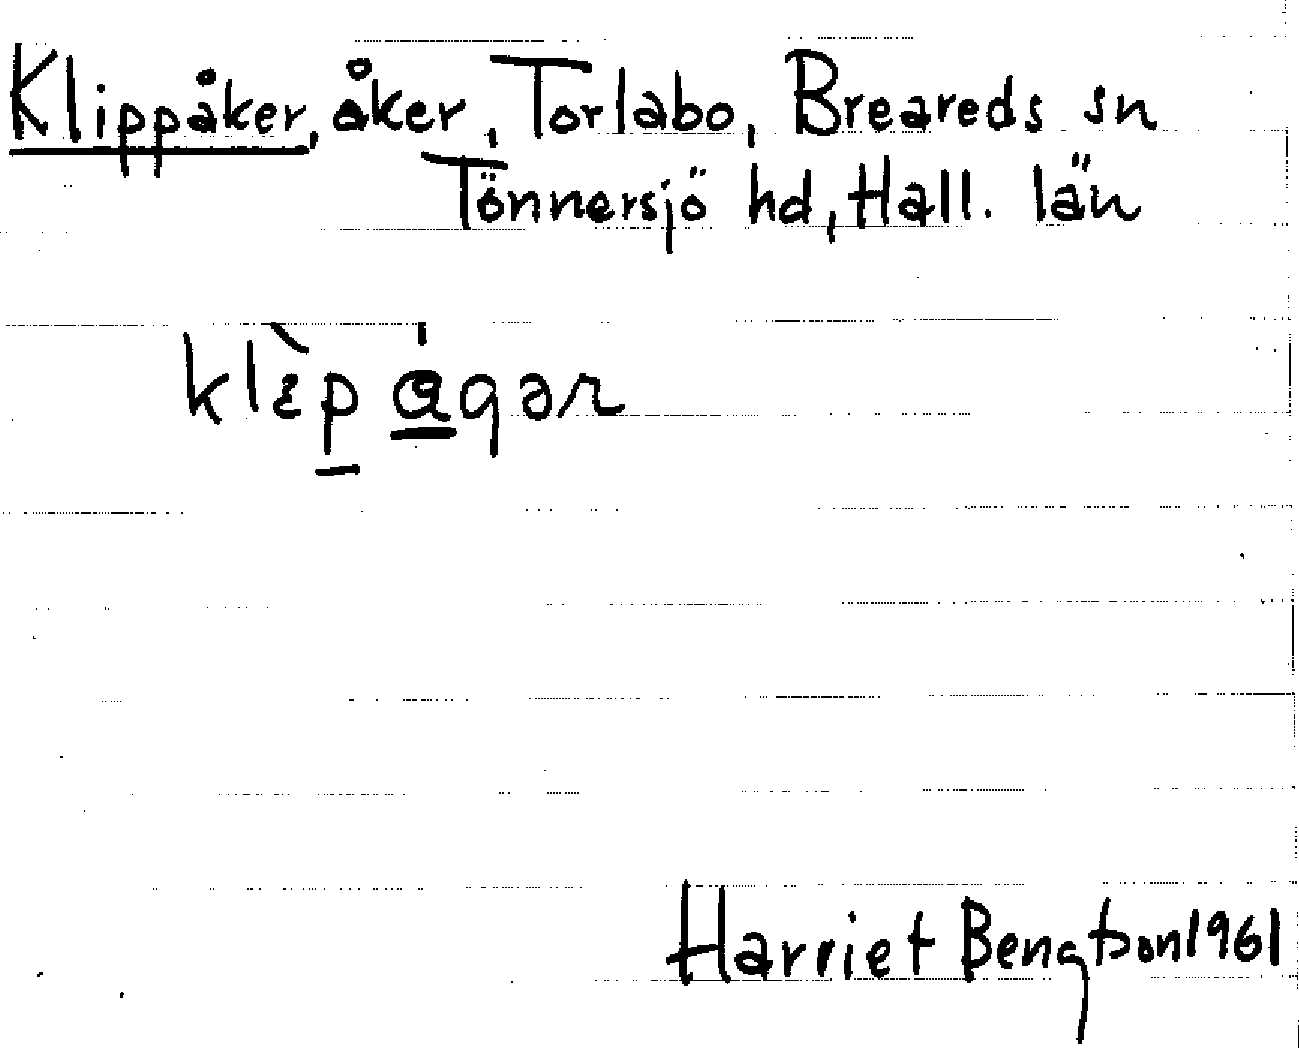 Klippåker, åker, Torlabo, Breareds sn
Tönnersjö hd, Hall. län
Harriet Bengtson 1961